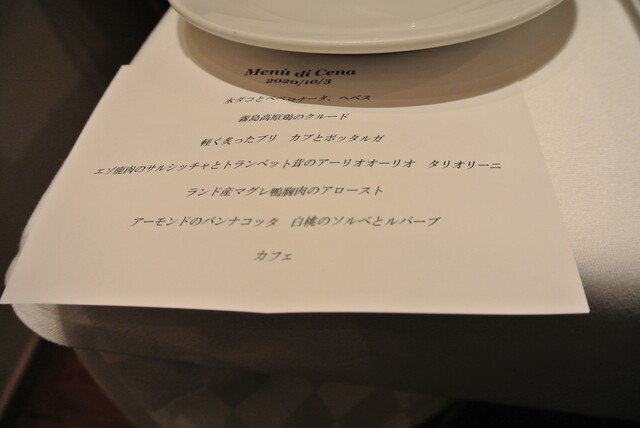 Menù di Cena
2020/10/3
水ダコとペペロナータ、ヘベス
霧島高原鶏のクルード
軽く炙ったブリ　カブとボッタルガ
エゾ鹿肉のサルシッチャとトランペット茸のアーリオオーリオ　タリオリーニ
ランド産マグレ鴨胸肉のアロースト
アーモンドのパンナコッタ　白桃のソルベとルバーブ
カフェ